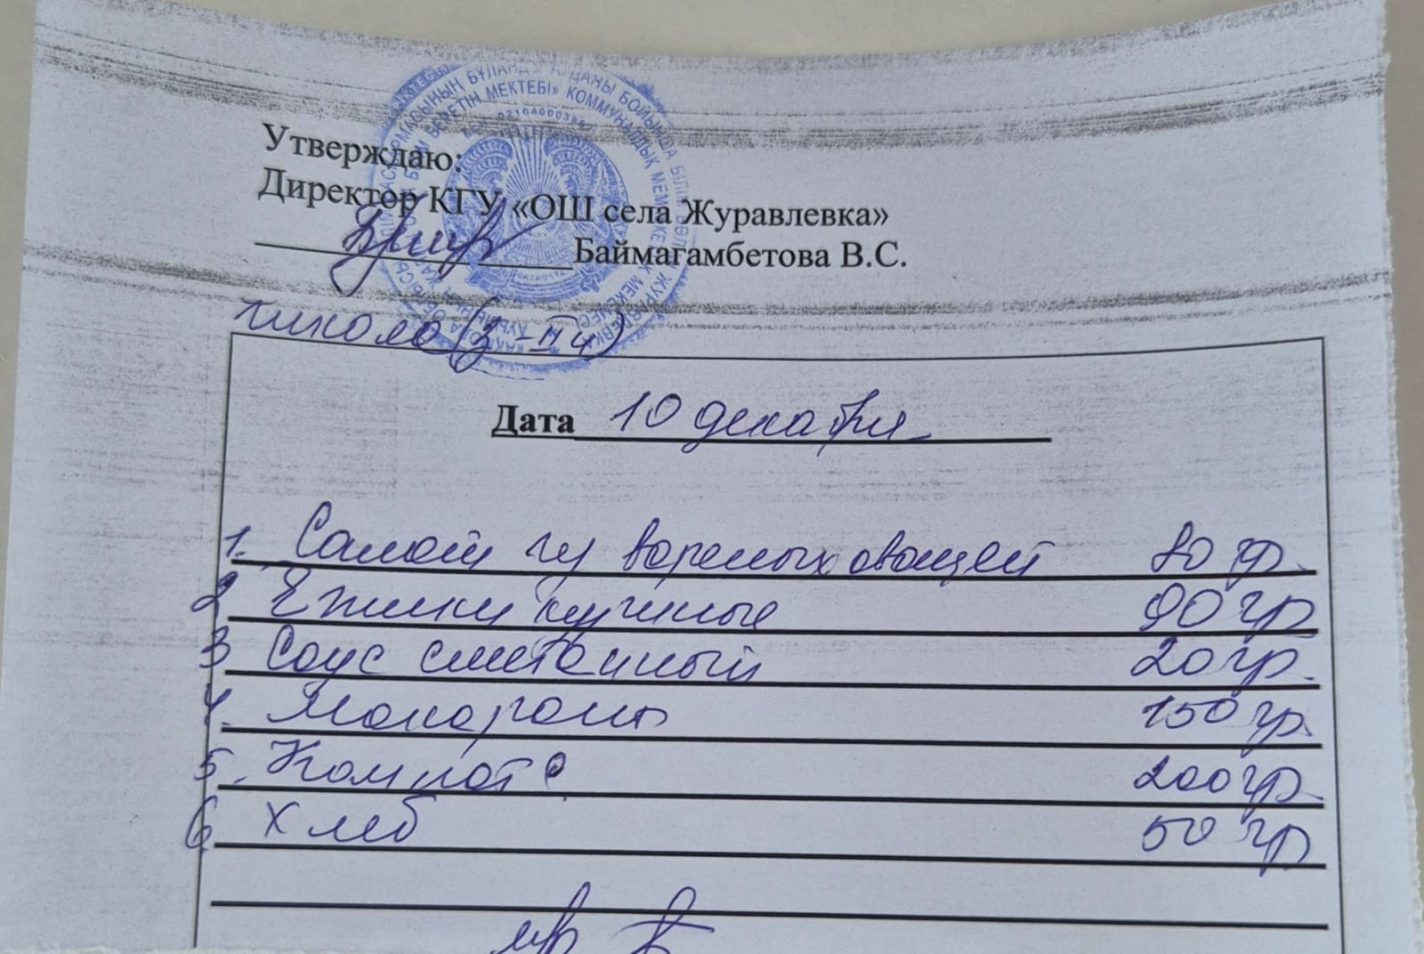 Утверждаю:
Директор КГУ «ОШ села Журавлевка»
Баймагамбетова В.С.
Дата 10 декабря
1. Салат из вареных овощей 80 гр.
2 Ежики куриные 90 гр
3 Соус сметанный 20 гр.
4. Макароны 150 гр.
5. Компот 200 гр.
6. Хлеб 50 гр